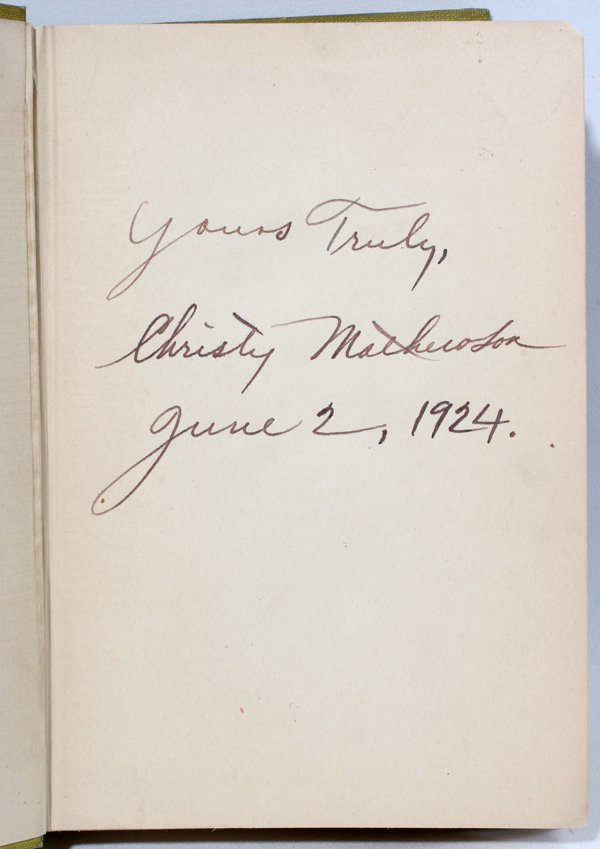 Yours Truly,
Christy Mathewson
June 2, 1924.